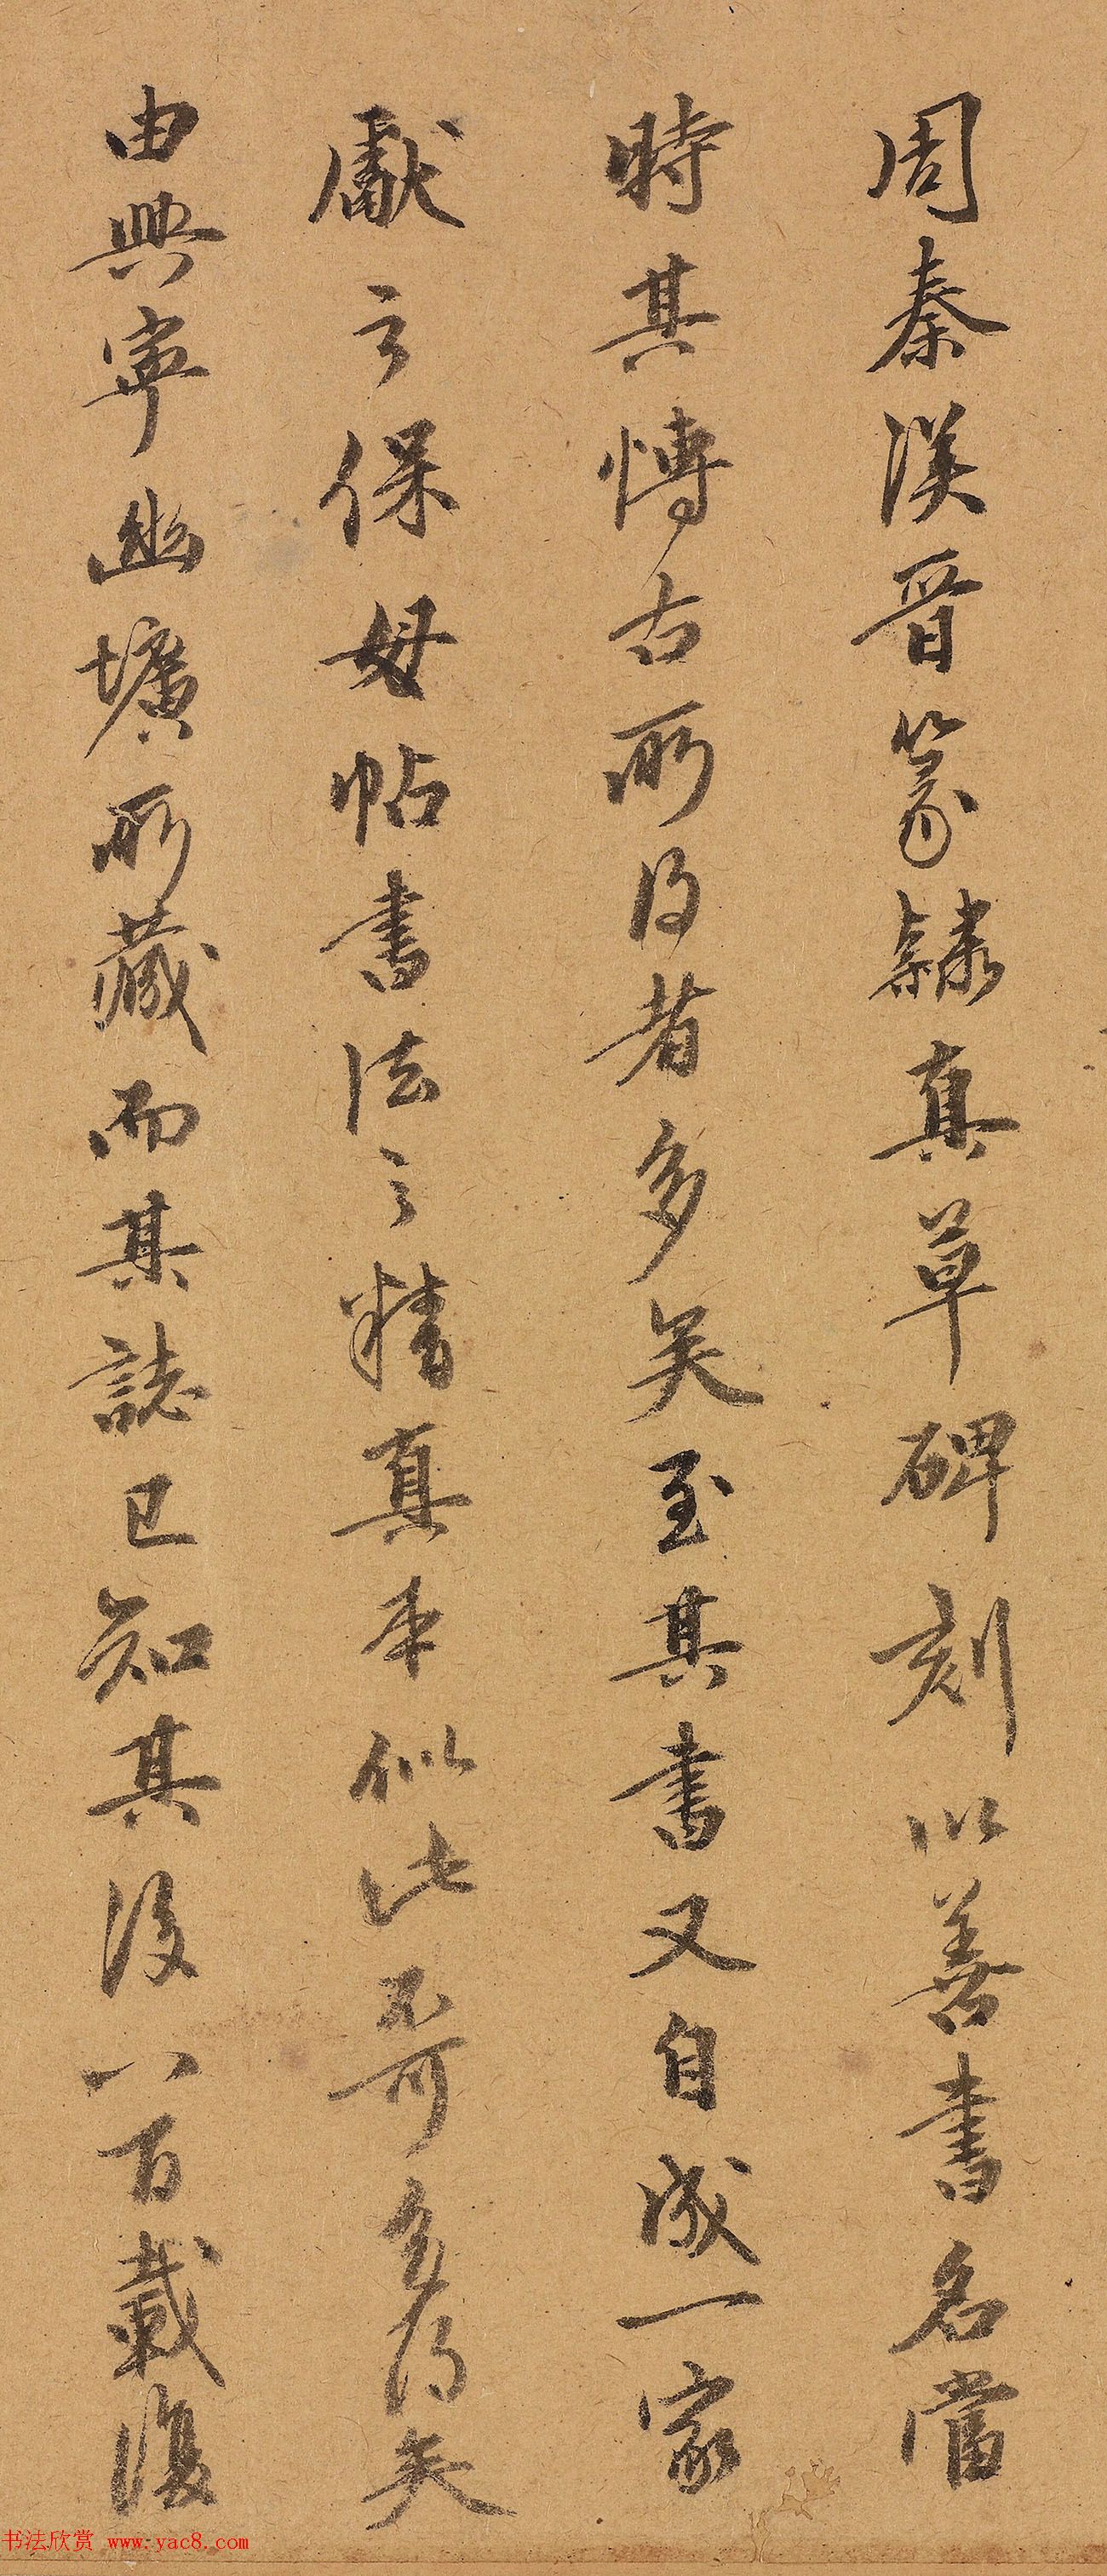 周秦漢晉篆隸真草碑刻以善書名當
時其博古所得者多矣至其書又自成一家
獻之保母帖書法之精真本似此不可多得矣
由興寧幽壙所藏而其誌已知其後八百載復
书法欣赏 www.yac8.com